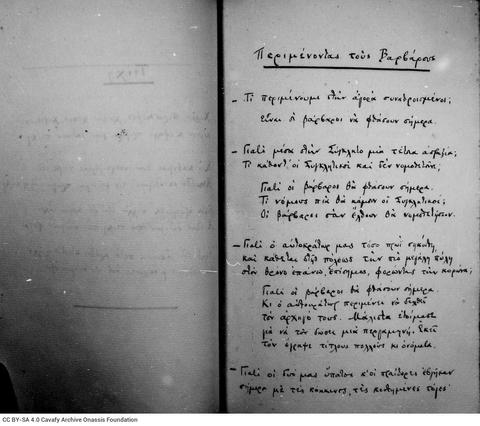 Περιμένοντας τους Βαρβάρους
— Τι περιμένουμε στην αγορά συναθροισμένοι;
Είναι οι βάρβαροι να φθάσουν σήμερα.
— Γιατί μέσα στην Σύγκλητο μιά τέτοια απραξία;
Τι κάθοντ' οι Συγκλητικοί και δεν νομοθετούνε;
Γιατί οι βάρβαροι θα φθάσουν σήμερα.
Τι νόμους πια θα κάμουν οι Συγκλητικοί;
Οι βάρβαροι σαν έλθουν θα νομοθετήσουν.
— Γιατί ο αυτοκράτωρ μας τόσο πρωί σηκώθη,
και κάθεται στης πόλεως την πιο μεγάλη πύλη
στον θρόνο επάνω, επίσημος, φορώντας την κορώνα;
Γιατί οι βάρβαροι θα φθάσουν σήμερα.
Κι ο αυτοκράτωρ περιμένει να δεχθεί
τον αρχηγό τους. Μάλιστα ετοίμασε
για να τον δώσει μια περγαμηνή. Εκεί
τον έγραψε τίτλους πολλούς κι ονόματα.
— Γιατί οι δυό μας ύπατοι κ' οι πραίτορες εβγήκαν
σήμερα με τες κόκκινες, τες κεντημένες τόγες·
CC BY-SA 4.0 Cavafy Archive Onassis Foundation